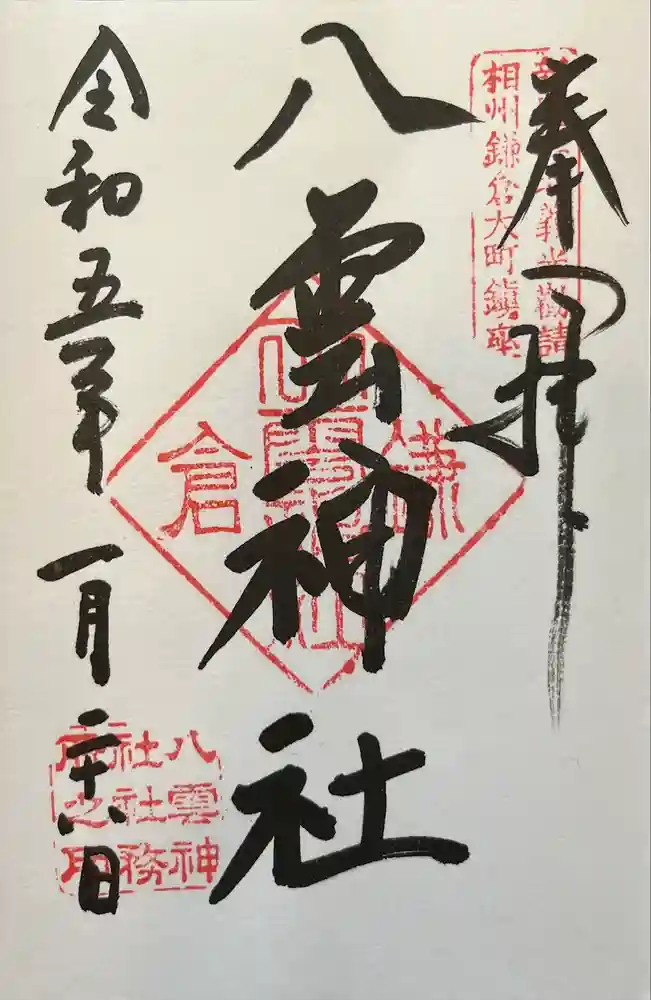 奉拝
義光勸請
相州鎌倉大町鎮座
八雲神社
鎌倉
令和五年 一月二十六日
八雲神
社社務
所之印